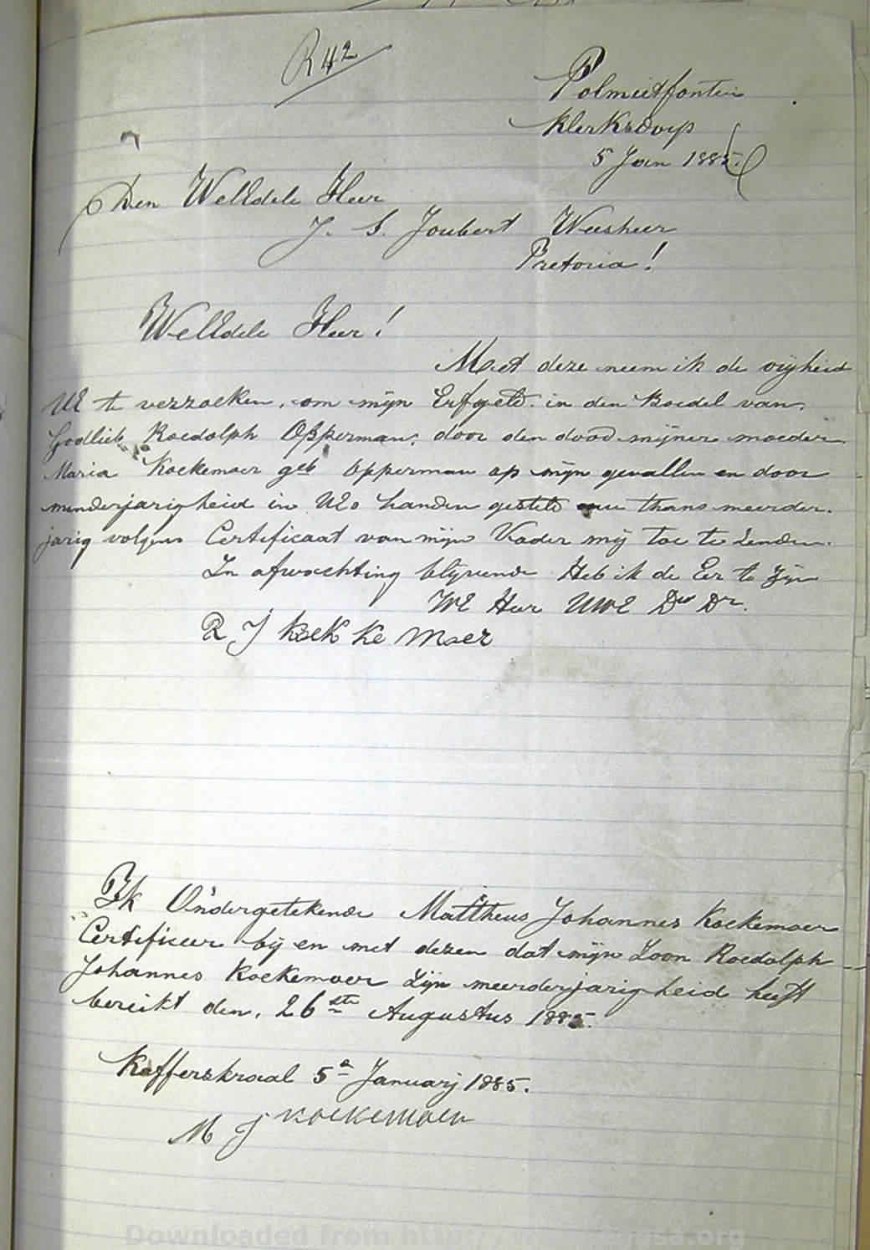 R 42
Polmietfontein
Klerksdorp
5 Jan 1885.
Den WelEdele Heer
J. S. Joubert Weesheer
Pretoria!
WelEdele Heer!
Met deze neem ik de vrijheid
UE te verzoeken, om mijn Erfgeld in den Boedel van
Godlieb Roedolph Opperman, door den dood mijner moeder
Maria Koekemoer geb Opperman op mijn gevallen en door
minderjarigheid in UEo handen gesteld thans meerder-
jarig volgens Certificaat van mijn Vader mij toe te Zenden.
In afwachting blijvende Heb ik de Eer te Zijn
WE Heer UWE Dw Dr.
R J koek ke moer
Ik Ondergetekende Mattheus Johannes Koekemoer
Certificeer bij en met dezen dat mijn Zoon Roedolph
Johannes Koekemoer Zijn meerderjarigheid heeft
bereikt den, 26ste Augustus 1885.
Kafferskraal 5e Januarij 1885.
M J KOEKEMOER
Downloaded from http://